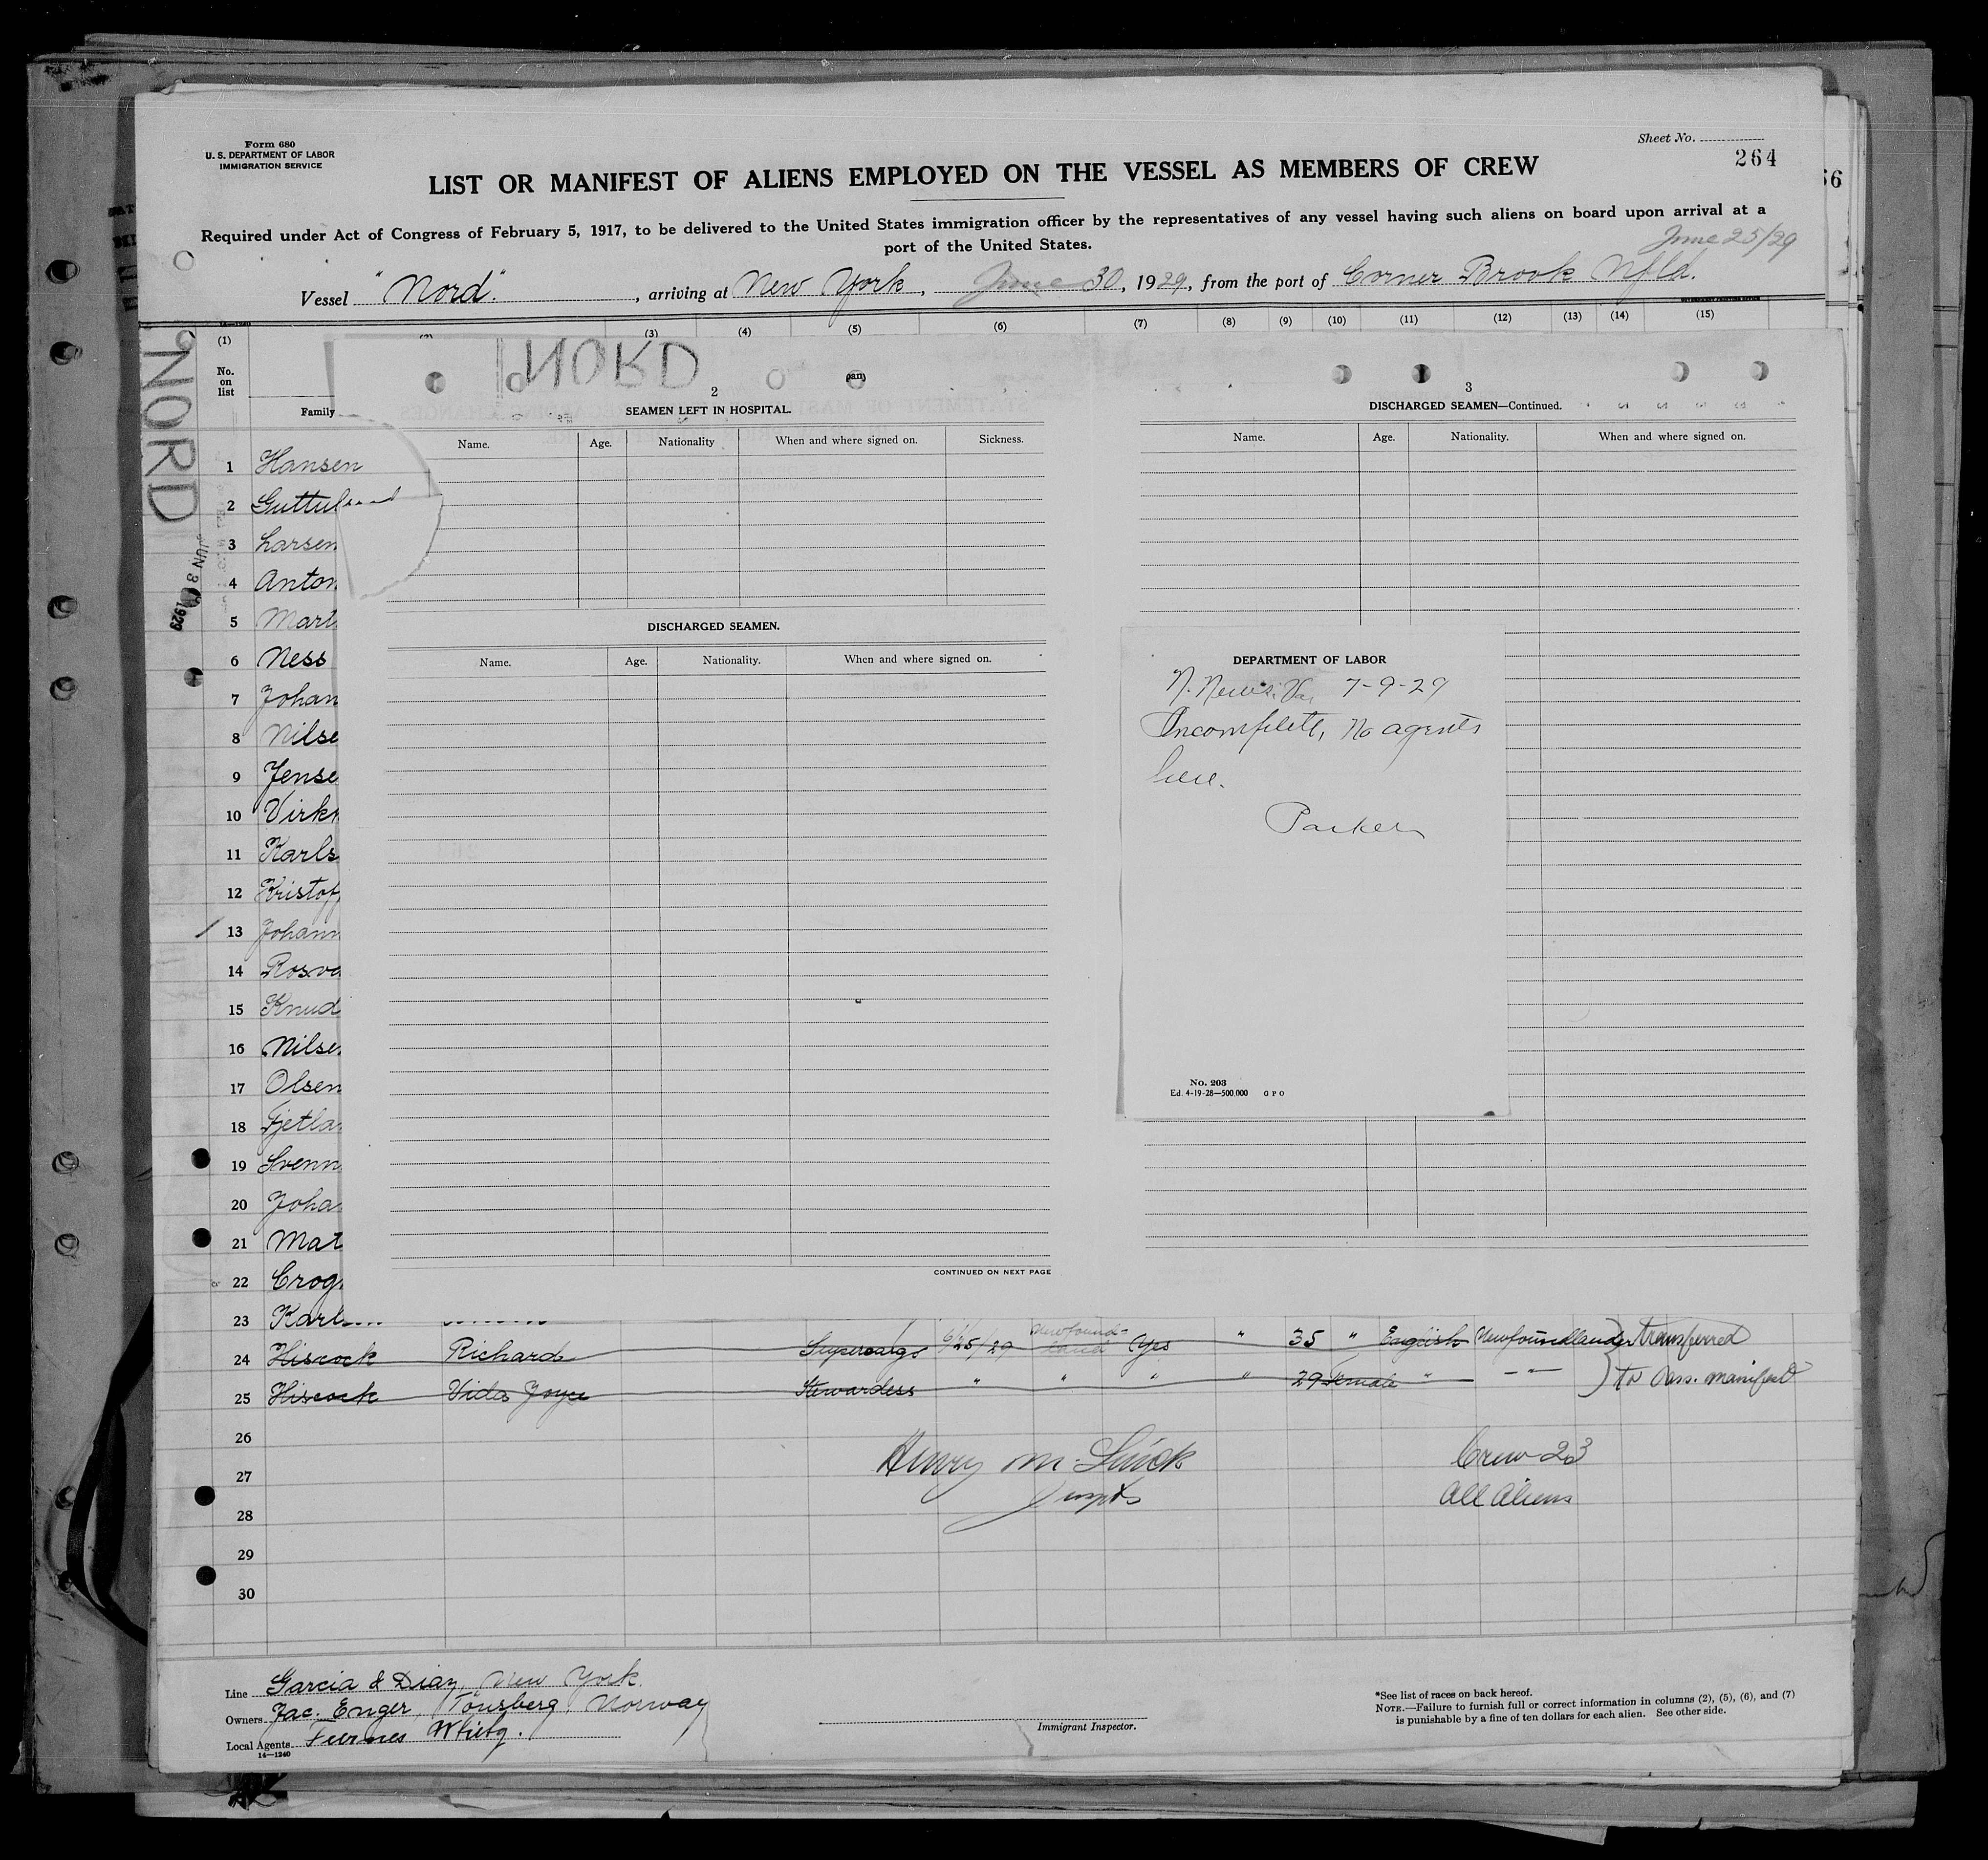 Form 680
U. S. DEPARTMENT OF LABOR
IMMIGRATION SERVICE
Sheet No.
264
66
LIST OR MANIFEST OF ALIENS EMPLOYED ON THE VESSEL AS MEMBERS OF CREW
Required under Act of Congress of February 5, 1917, to be delivered to the United States immigration officer by the representatives of any vessel having such aliens on board upon arrival at a
port of the United States.
June 25/29
Vessel "Nord", arriving at New York, June 30, 1929, from the port of Corner Brook Nfld.
(1) (3) (4) (5) (6) (7) (8) (9) (10) (11) (12) (13) (14) (15)
No. on list
Family
NORD
NORD
JUN 30 1929
2
SEAMEN LEFT IN HOSPITAL.
Name. Age. Nationality When and where signed on. Sickness.
DISCHARGED SEAMEN.
Name. Age. Nationality. When and where signed on.
CONTINUED ON NEXT PAGE
3
DISCHARGED SEAMEN—Continued.
Name. Age. Nationality. When and where signed on.
DEPARTMENT OF LABOR
N. News. Va, 7-9-29
Incomplete, No agents
here.
Parker
No. 203
Ed. 4-19-28—500,000 G P O
1 Hansen
2 Guttul
3 Larsen
4 Anton
5 Mart
6 Ness
7 Johan
8 Nilse
9 Jense
10 Virk
11 Karls
12 Kristof
13 Johann
14 Rosva
15 Knud
16 Nilse
17 Olsen
18 Fjetla
19 Svenn
20 Joha
21 Mat
22 Crog
23 Karl
24 Hiscock Richard Supercargo 6/25/29 Newfoundland Yes " 35 " English Newfoundlander transferred
25 Hiscock Vida Joyce Stewardess " " " " 29 Female " — " — to Pass. manifest
26
27
28
29
30
Henry M.
Crew 23
All Aliens
Line Garcia & Diaz, New York.
Owners Jac. Enger, Tönsberg, Norway
Local Agents Furness Withy.
14—1240
Immigrant Inspector.
*See list of races on back hereof.
NOTE.—Failure to furnish full or correct information in columns (2), (5), (6), and (7)
is punishable by a fine of ten dollars for each alien. See other side.